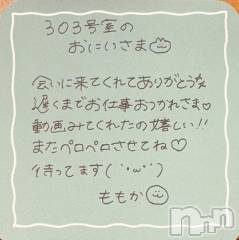 303号室の
おにいさま
会いに来てくれてありがとうな
遅くまでお仕事おつかれさま♡
動画みてくれたの嬉しい!!
またペロペロさせてね♡
待ってます(¨・ω・¨)
ももか